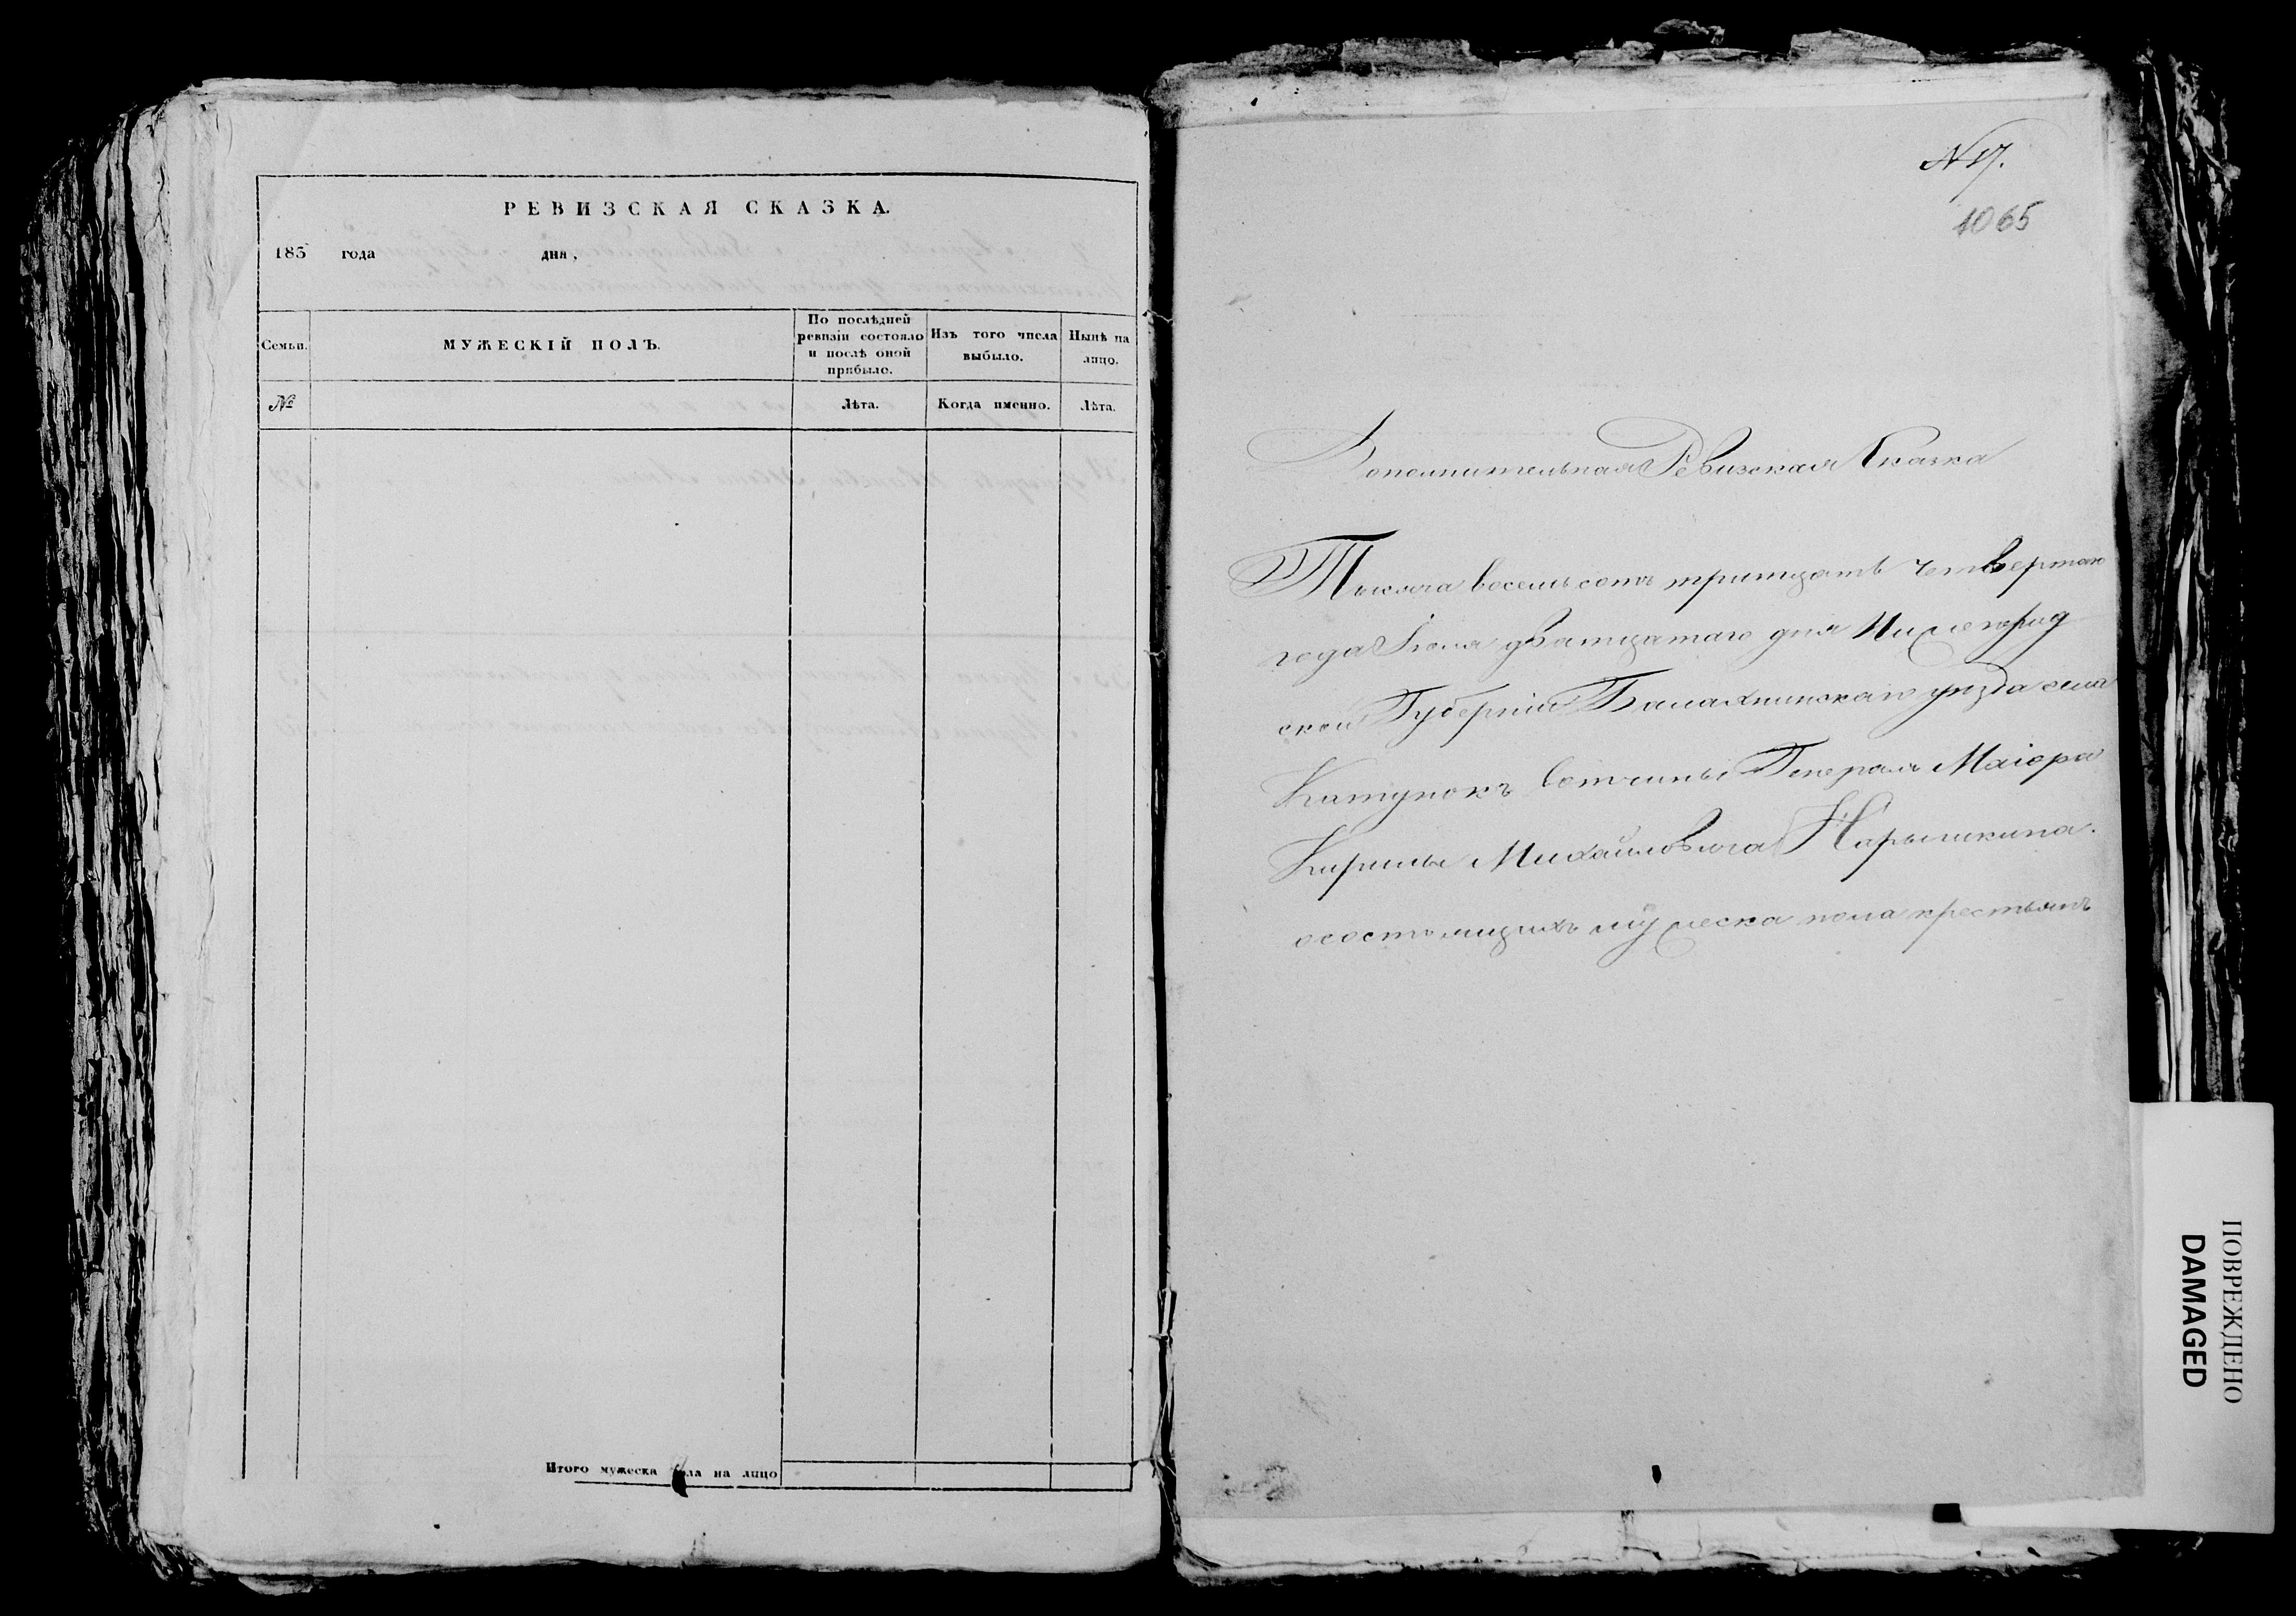 РЕВИЗСКАЯ СКАЗКА.
183 года дня,
Семьи. МУЖЕСКІЙ ПОЛЪ. По послѣдней ревизіи состояло и послѣ оной прибыло. Изъ того числа выбыло. Нынѣ на лицо.
№ Лѣта. Когда именно. Лѣта.
Итого мужеска пола на лицо
N 17.
1065
Дополнительная Ревизская Сказка
Тысяча восемьсотъ тритцать четвертаго
года Іюля дватцатаго дня Нижегород
ской Губерніи Балахнинскаго уѣзда села
Катунокъ вотчины Генералъ Маіора
Кирилы Михайловича Нарышкина.
осостоящихъ мужеска пола крестьянъ
ПОВРЕЖДЕНО
DAMAGED